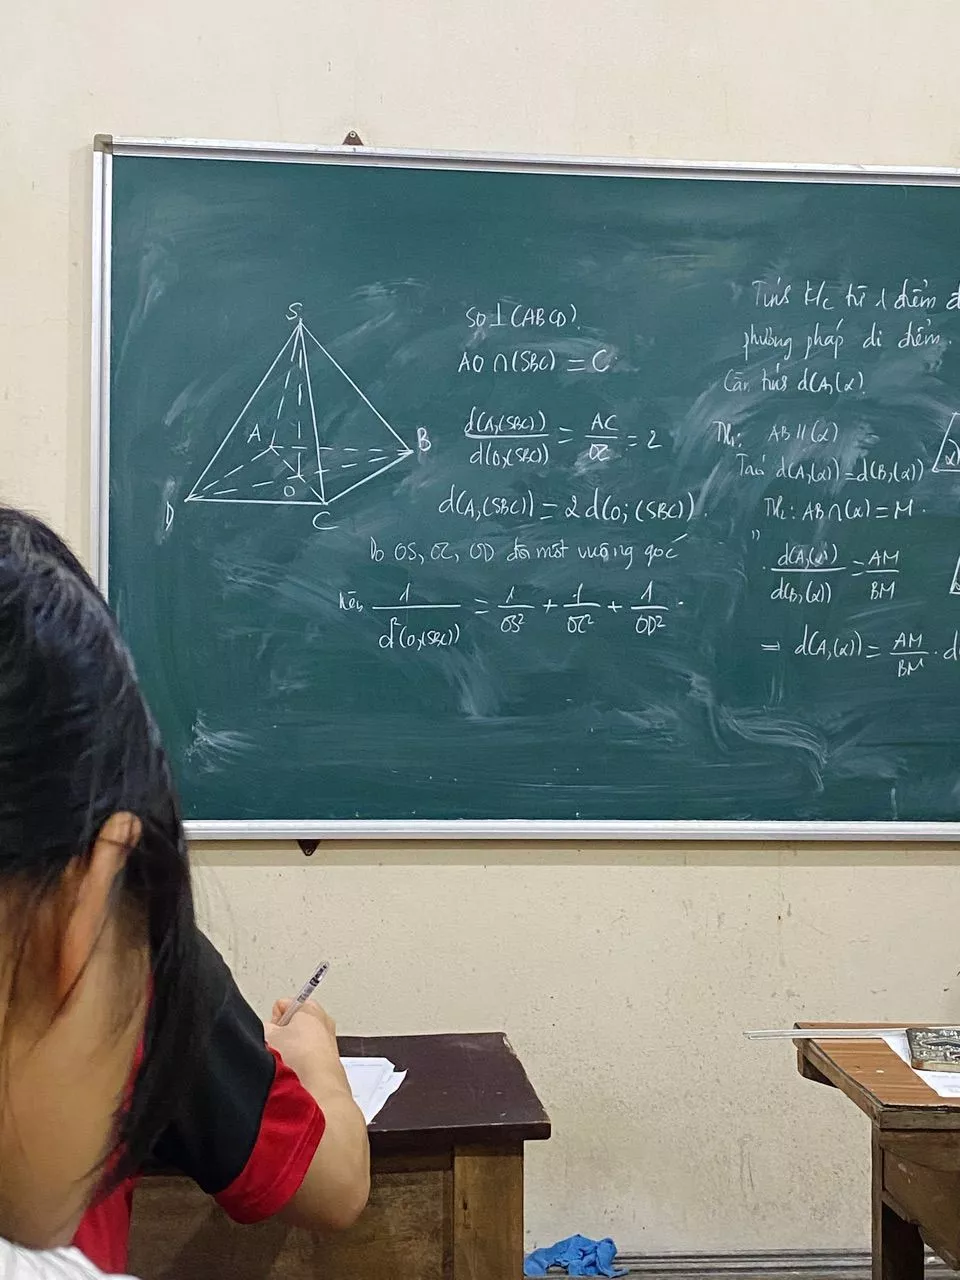 S
A
B
O
D
C
SO⊥(ABCD).
AO∩(SBC) = C
d(A,(SBC))/d(O,(SBC)) = AC/OC = 2
d(A,(SBC)) = 2d(O;(SBC)).
Do OS, OC, OD đôi một vuông góc
nên 1/d²(O,(SBC)) = 1/OS² + 1/OC² + 1/OD².
Tính k/c từ 1 điểm
phương pháp di điểm.
Cần tính d(A,(α)).
Th₁: AB // (α)
d(A,(α)) = d(B,(α))
α)
Th₂: AB∩(α) = M.
d(A,(α))/d(B,(α)) = AM/BM
⇒ d(A,(α)) = AM/BM . d(